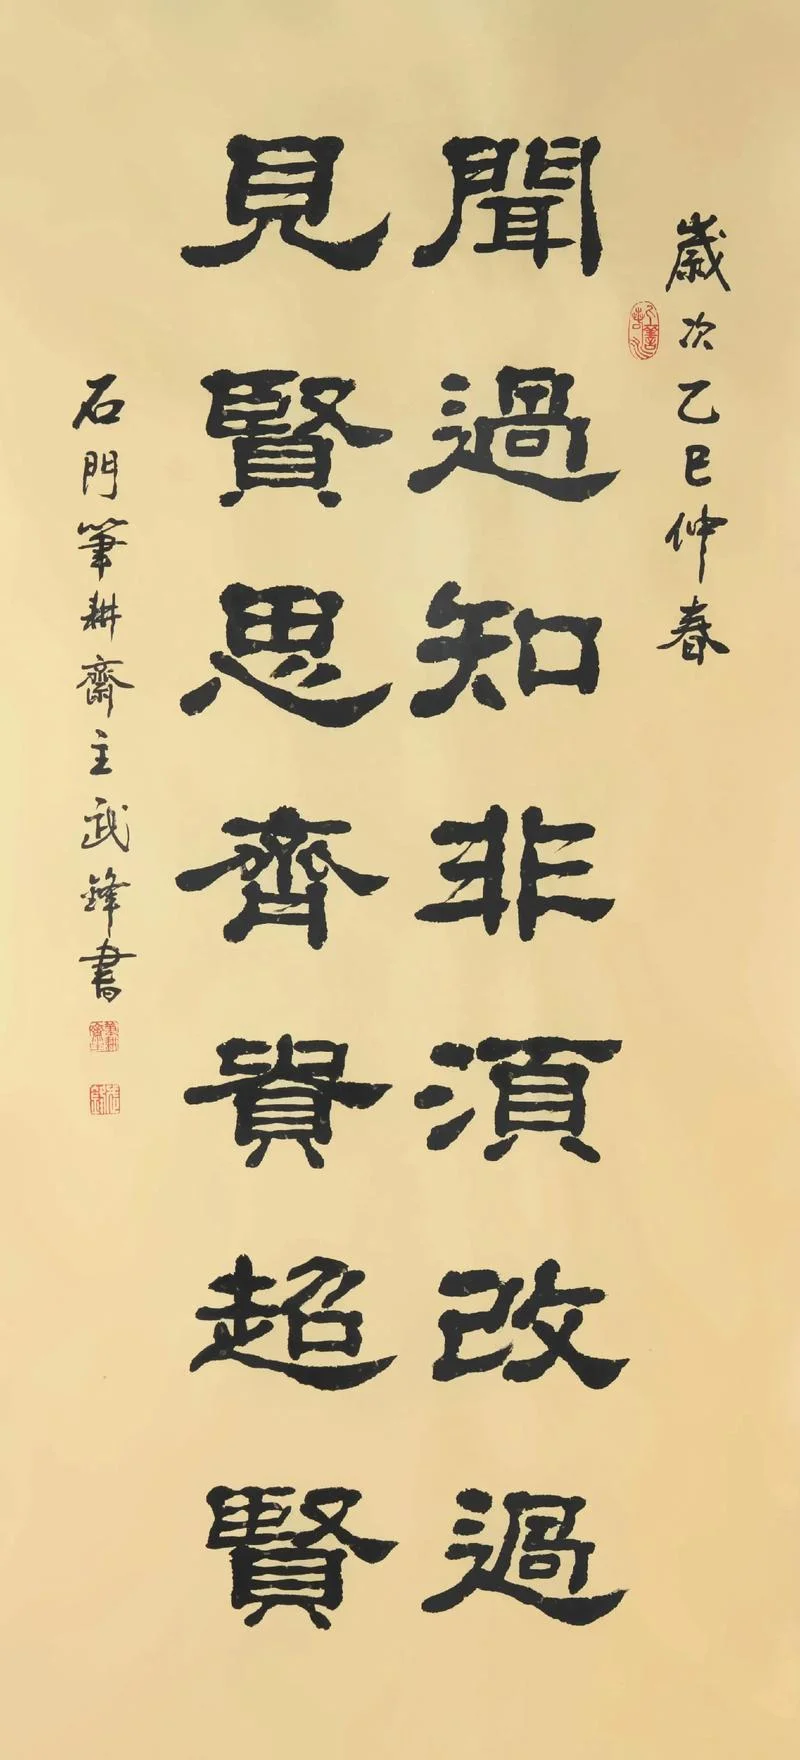 歲次乙巳仲春
聞過知非須改過
見賢思齊貴超賢
石門筆耕齋主武鋒書
筆耕齋主